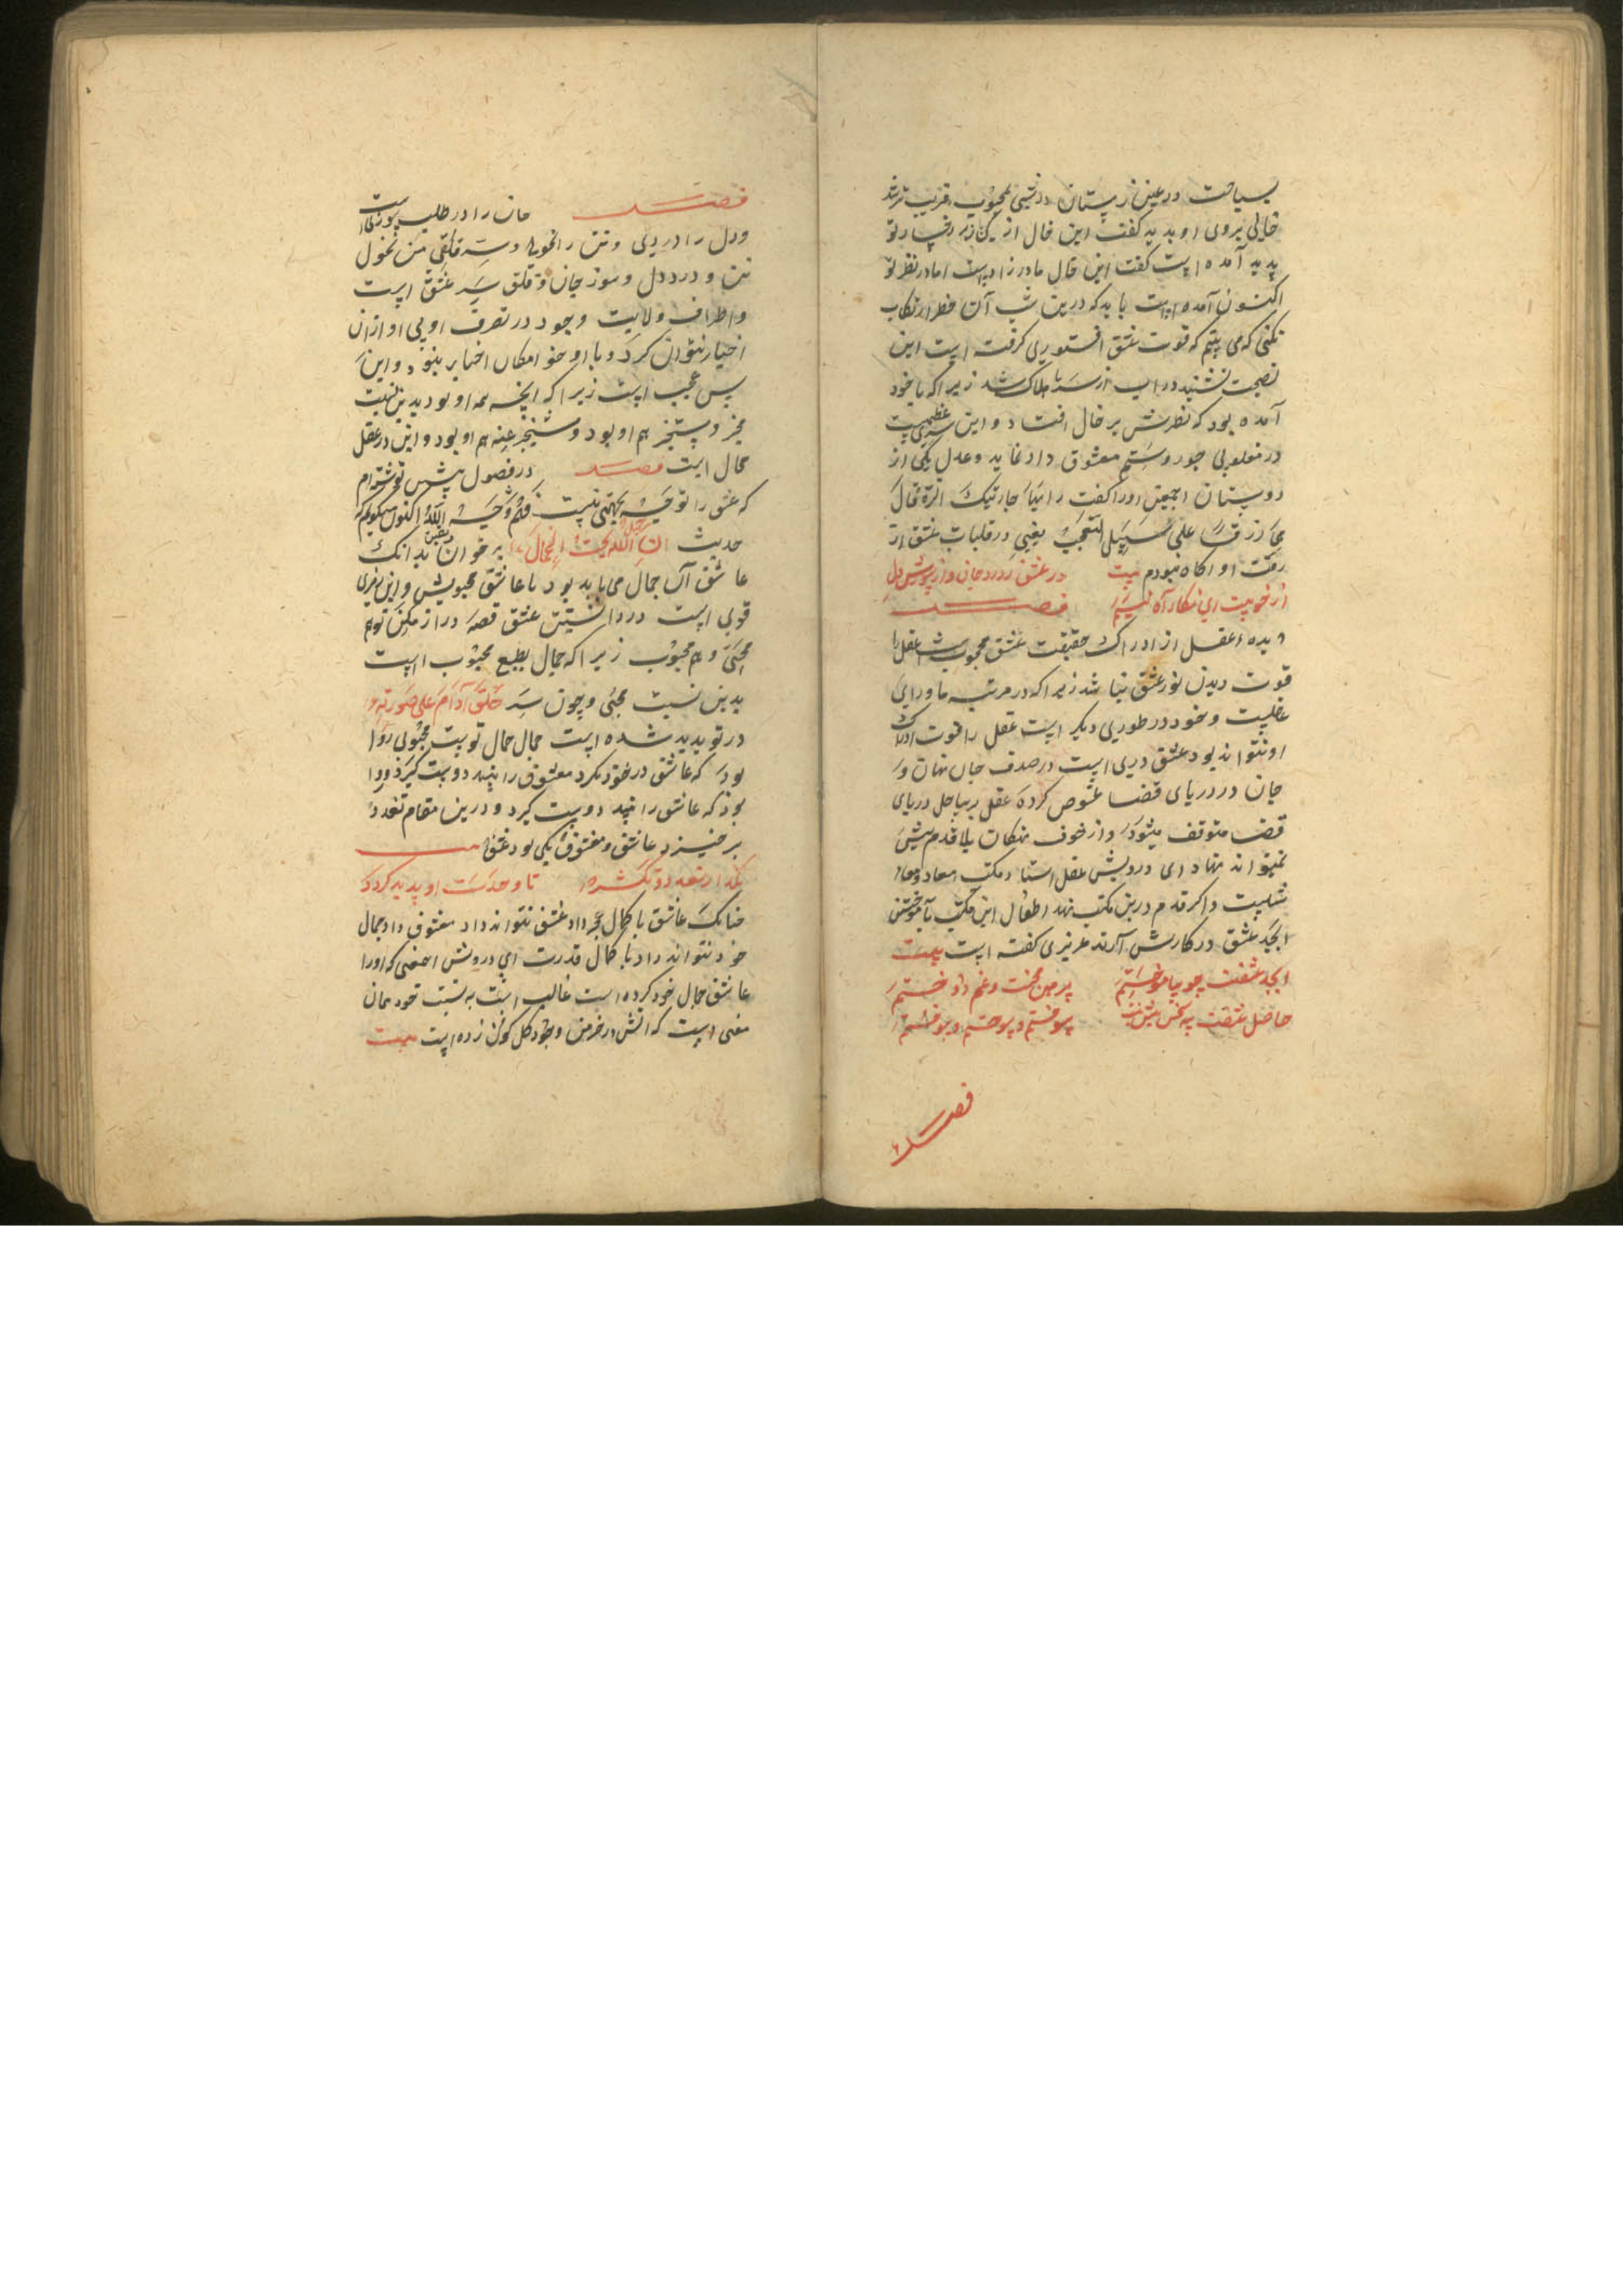 سیاحت در عین زمستان در شبی محبوب قریب تر شد
خالی بروی او بدید گفت این خال از کی بر رخسار تو
پدید آمده است گفت این خال مادرزاد است اما در نظر تو
اکنون آمده است باید که درین شب آن خطر ارتکاب
نکنی که می بینم که قوت عشق فتوری گرفته است این
نصیحت نشنید در آب از سرما هلاک شد زیرا که با خود
آمده بود که نظرش بر خال افتاد و این سری عظیم است
در مغلوبی جور و ستم معشوق داد نماید و عدل یکی از
دوستان
او را گفت
علی سبیل التعجب یعنی در قلبات عشق از
رقت او آگاه نبودم بیت در عشق ز درد جان و از سوزش دل
ار خوبیت ای نگار آگاه نیم فصل
دیده عقل از ادراک حقیقت عشق محجوب است عقل را
قوت دیدن نور عشق نباشد زیرا که در مرتبه ماورای
عقلیت و خود در طوری دیگر است عقل را قوت ادراک
او نتواند بود عشق دری است در صدف جان نهان و
جان در دریای قضا غوص کرده عقل بر ساحل دریای
قضا متوقف میشود و از خوف نهنکان بلا قدم پیش
نمیتواند نهاد ای درویش عقل استاد مکتب معاد و معاش
است و اکر قدم درین مکتب نهد اطفال این مکتب بآموختن
ابجد عشق در کارش آرند عزیزی گفته است بیت
ابجد عشقت چو بیاموختم پیرهن محنت و غم دوختم
حاصل عشقت سه سخن بیش نیست سوختم و سوختم و سوختم
فصل
فصل جان را در طلب سوز است
و دل را درد و تن را نحول و سر قلق پس نحول
تن و درد دل و سوز جان و قلق سر عشق است
و اطراف ولایت وجود در تصرف اویی او ازان
اخیار نتوان کرد و با او خود امکان اخبار بنود و این
بس عجب است زیرا که آنچه همه او بود بدین نهیت
مخبر و مستخبر هم او بود و مستخبر عنه هم او بود و این در عقل
محال است فصل در فصول پیشین نوشته ام
که عشق را توجه بجهتی نیست فثم وجه الله اکنون میگویم که
حدیث ان الله جمیل یحب الجمال بر خوان و یقین بدانک
عاشق آن جمال می باید بود یا عاشق محبوبش و این رمزی
قوی است در دانستن عشق قصه دراز مکن تو هم
محبی و هم محبوب زیرا که جمال بطبع محبوب است
بدین نسبت محبی و چون سر خلق آدم علی صورته
در تو پدید شده است جمال جمال توست محبوبی روا
بود که عاشق در خود نکرد معشوق را بیند دوست کیرد و روا
بود که عاشق را بیند دوست کیرد و درین مقام تعدد
بر خیزد عاشق و معشوق یکی بود عشق بیت
بگذر از تعدد و تکثر تا وحدت او پدید کردد
چنانک عاشق با کمال عجز داد عشق نتواند داد معشوق داد جمال
خود نتواند داد با کمال قدرت ای درویش آن معنی که او را
عاشق جمال خود کرده است غالب است به نسبت خود همان
معنی است که آتش در خرمن وجود کل کون زده است بیت